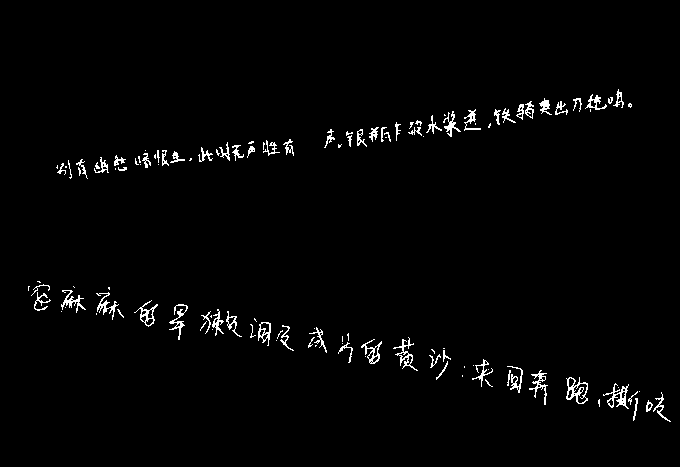 别有幽愁暗恨生,此时无声胜有声。银瓶乍破水浆迸,铁骑突出刀枪鸣。
密麻麻的旱獭洞及成片的黄沙;来回奔跑、撕咬